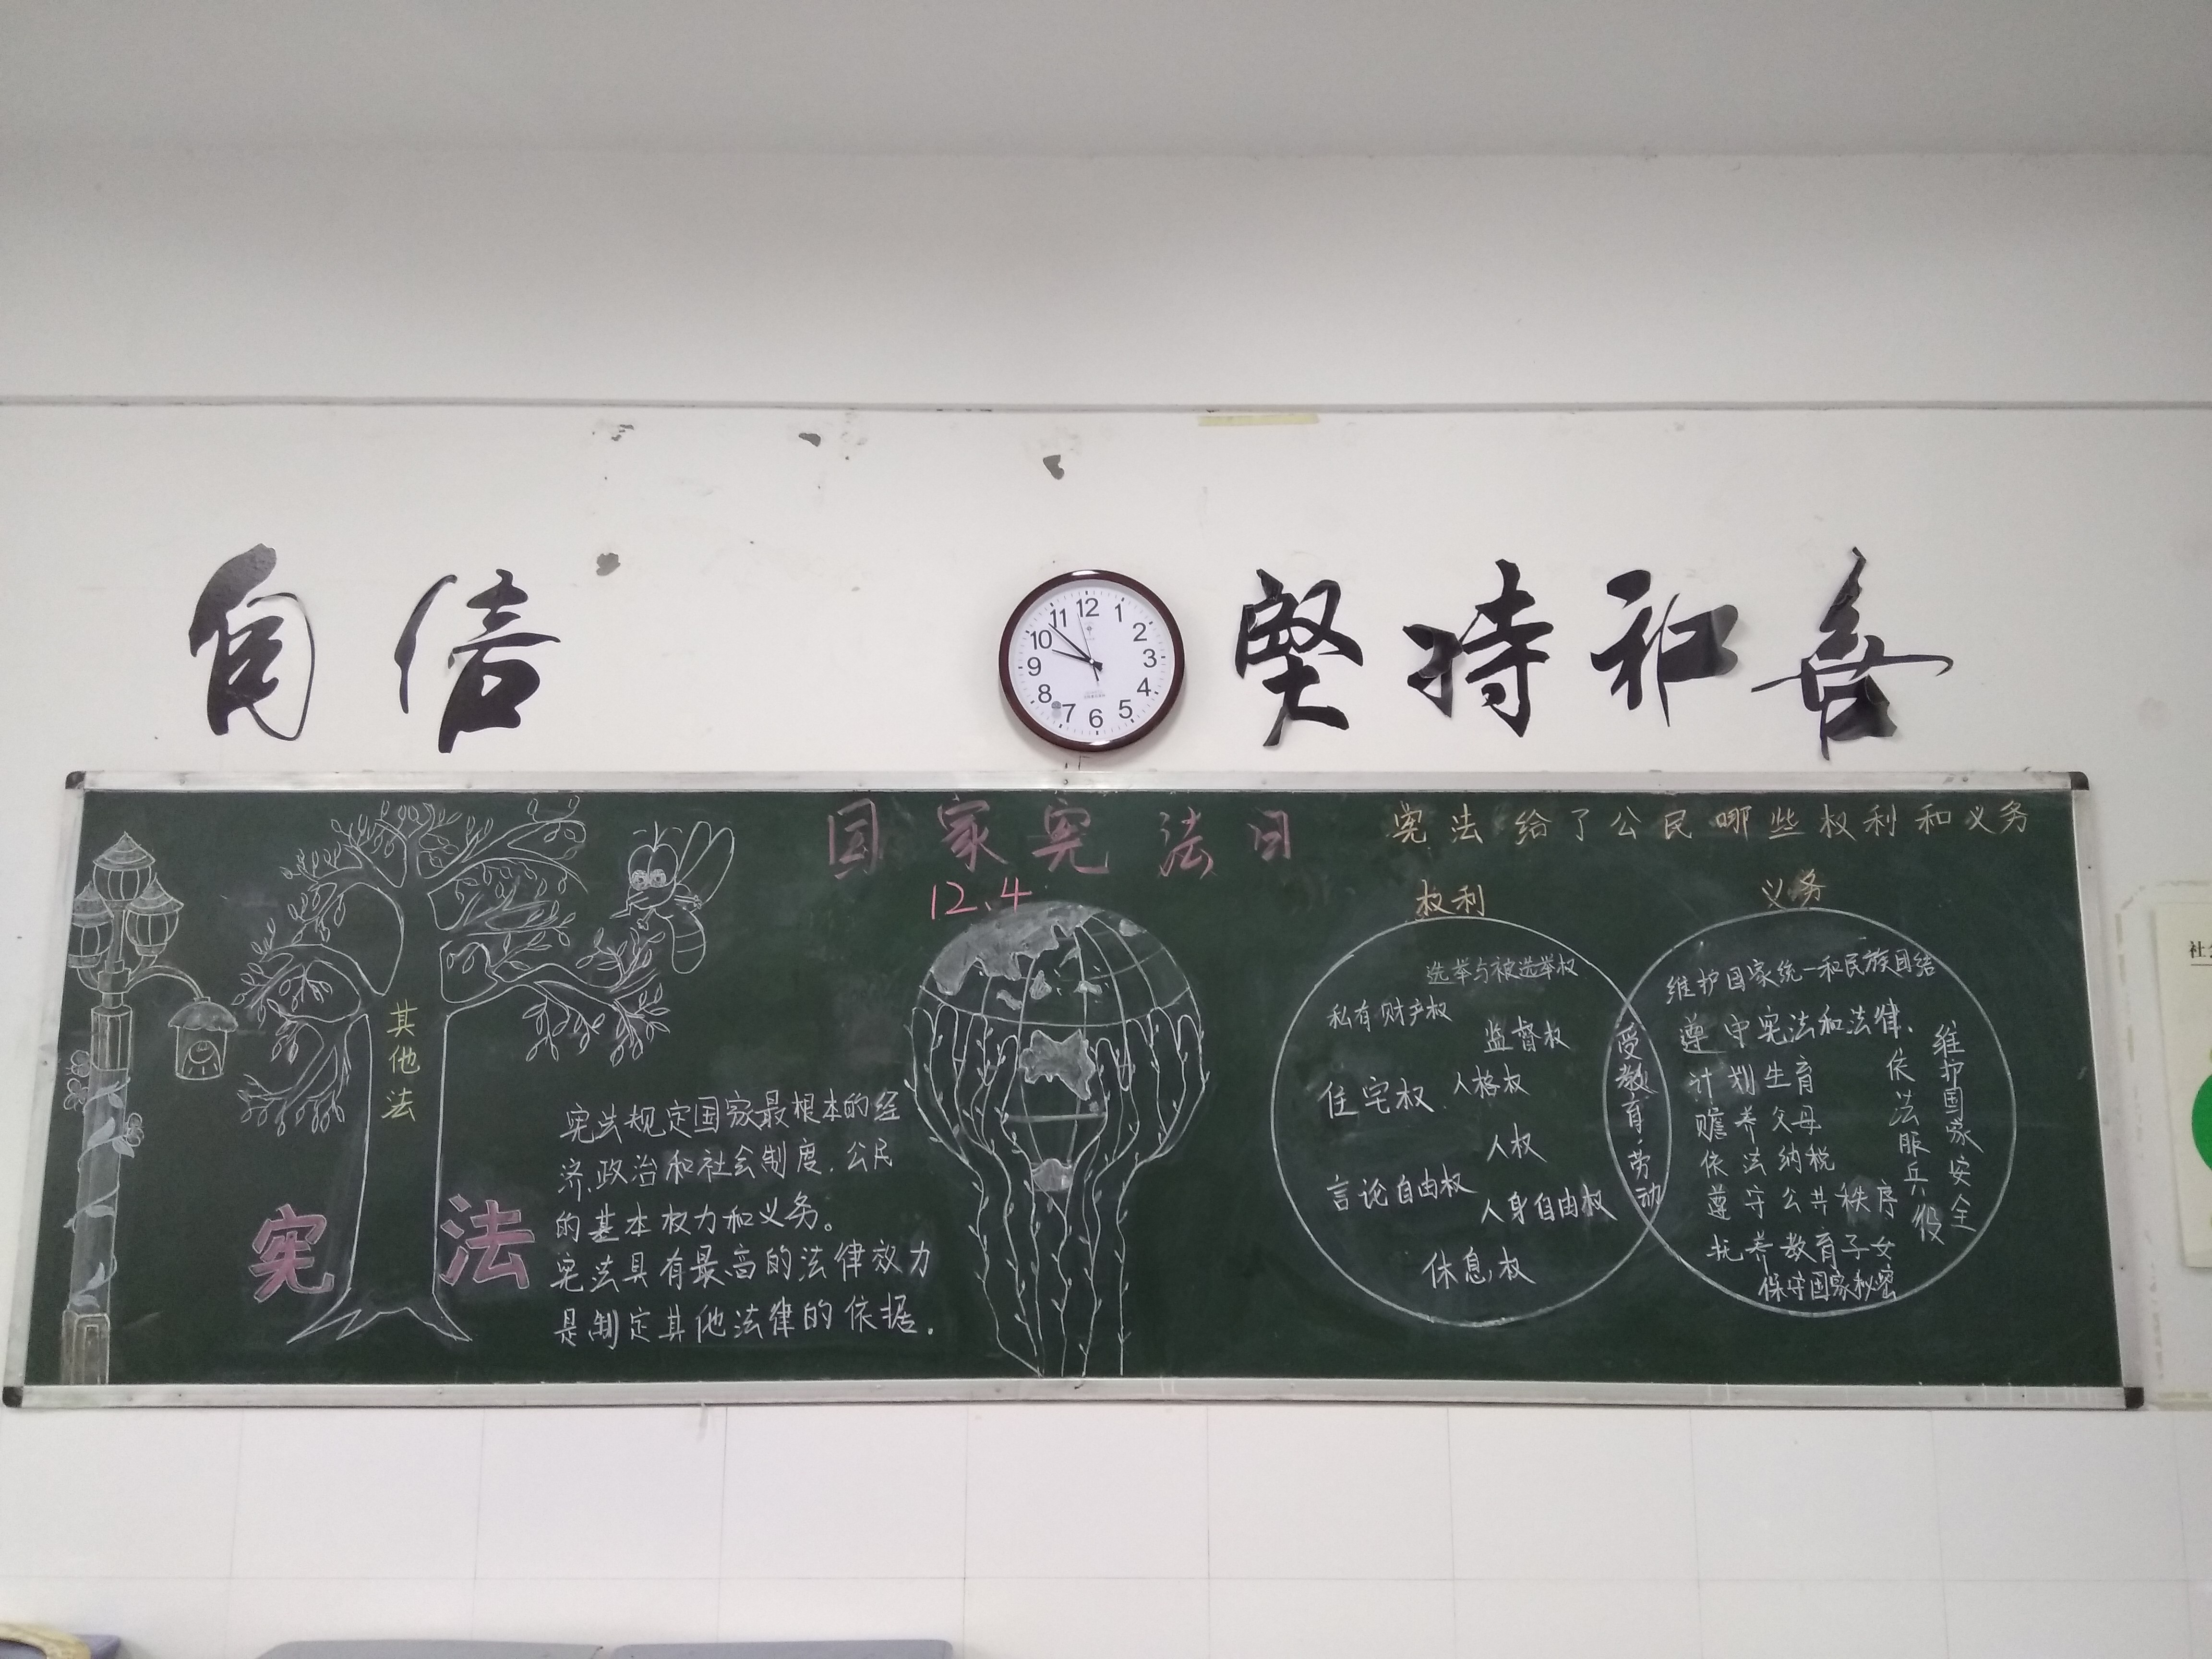 自信
坚持和善
12 1 2 3 4 5 6 7 8 9 10 11
国家宪法日
12.4
其他法
宪法
宪法规定国家最根本的经
济.政治和社会制度.公民
的基本权力和义务。
宪法具有最高的法律效力
是制定其他法律的依据.
宪法给了公民哪些权利和义务
权利
选举与被选举权
私有财产权
监督权
住宅权.
人格权
人权
言论自由权
人身自由权
休息权
受教育.劳动
义务
维护国家统一和民族团结
遵守宪法和法律.
计划生育
赡养父母
依法纳税
遵守公共秩序
抚养教育子女
保守国家秘密
依法服兵役
维护国家安全
社